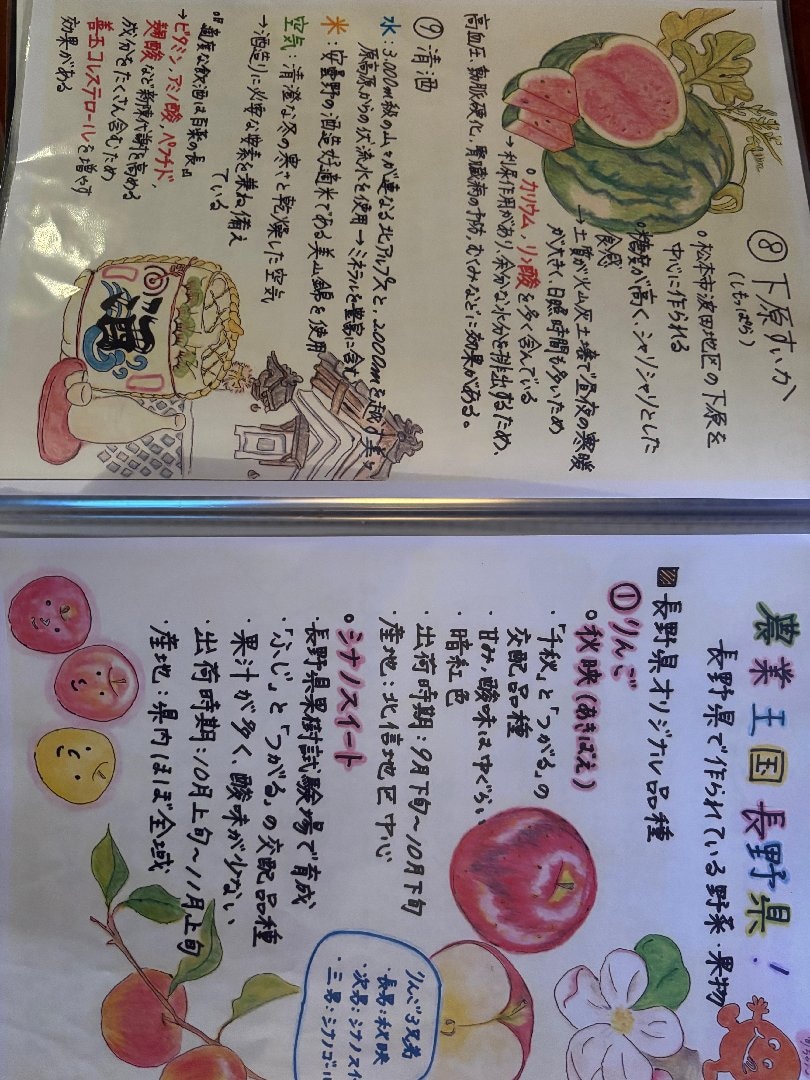 ⑧ 下原すいか
(しもっぱら)
○松本市波田地区の下原を
中心に作られる
○糖度が高く、シャリシャリとした
食感
→土質が火山灰土壌で昼夜の寒暖
が大きく日照時間も多いため
○カリウム、リン酸を多く含んでいる
→利尿作用があり、余分な水分を排出するため、
高血圧、動脈硬化、腎臓病の予防、むくみなどに効果がある。
⑨清酒
水:3,000m級の山々が連なる北アルプスと、2,000mを
原高原からの伏流水を使用→ミネラルを豊富に含む
米:安曇野の酒造好適米である美山錦を使用
空気:清澄な冬の寒さと乾燥した空気
→酒造りに必要な要素を兼ね備え
ている
○適度な飲酒は百薬の長
→ビタミン、アミノ酸、ペプチド、
麹酸など新陳代謝を高める
成分をたくさん含むため
善玉コレステロールを増やす
効果がある
農業王国長野県!
長野県で作られている野菜・果物
長野県オリジナル品種
①りんご
○秋映(あきばえ)
・「千秋」と「つがる」の
交配品種
・甘み、酸味は中ぐらい
・暗紅色
・出荷時期:9月下旬~10月下旬
・産地:北信地区中心
○シナノスイート
・長野県果樹試験場で育成
・「ふじ」と「つがる」の交配品種
・果汁が多く、酸味が少ない
・出荷時期:10月上旬~11月上旬
・産地:県内ほぼ全域
りんご3兄弟
・長男:秋映
・次男:シナノスイ
・三男:シナノゴール